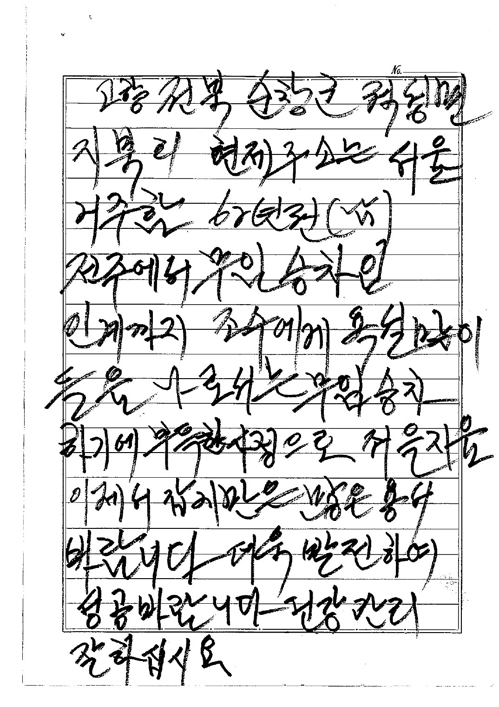 No.
고향 전북 순창군 적성면
지북리 현제주소는 서울
거주함 62년전(낮)
전주에서 무임승차인
인계까지 조수에게 욕설많이
들음 나로서는 무임승차
하기에 부득한사정으로 저을지음
이제서 잡지만은 많은 용서
바랍니다 더욱 발전하여
성공바랍니다 건강관리
잘하십시요